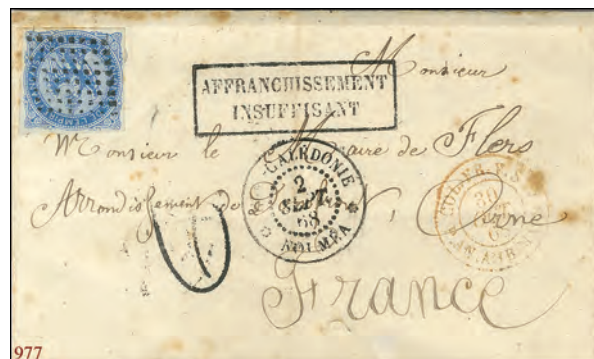 AFFRANCHISSEMENT
INSUFFISANT
Monsieur
Monsieur le Maire de Flers
Arrondissement de Orne
France
Nle CALÉDONIE
2
SEPT
68
NOUMÉA
COL. FR.
977